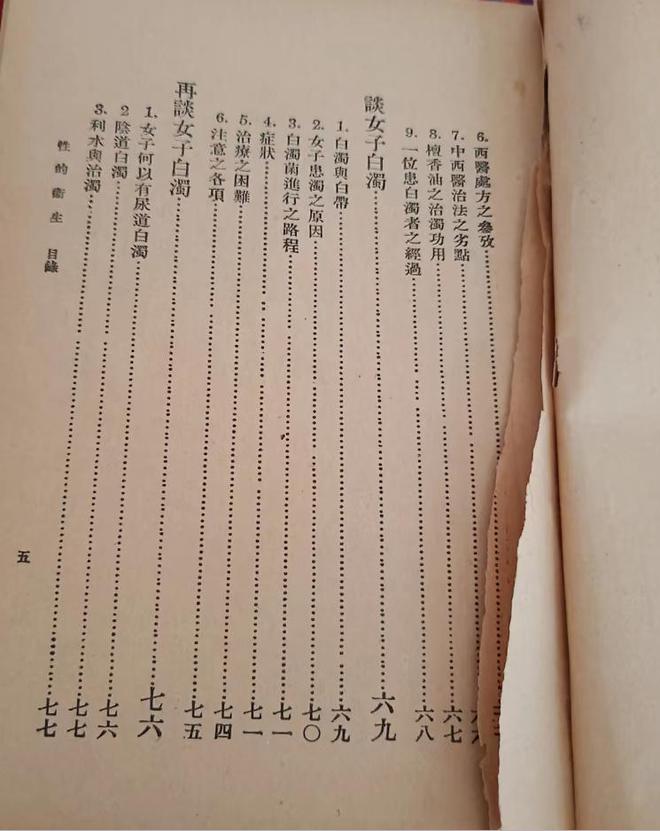 6. 西醫處方之參攷
7. 中西醫治法之劣點
8. 檀香油之治濁功用……六七
9. 一位患白濁者之經過……六八
談女子白濁……六九
1. 白濁與白帶……六九
2. 女子患濁之原因……七〇
3. 白濁菌進行之路程……七一
4. 症狀……七一
5. 治療之困難……七四
6. 注意之各項……七五
再談女子白濁……七六
1. 女子何以有尿道白濁……七六
2 陰道白濁……七七
3. 利水與治濁……七七
性的衞生 目錄
五